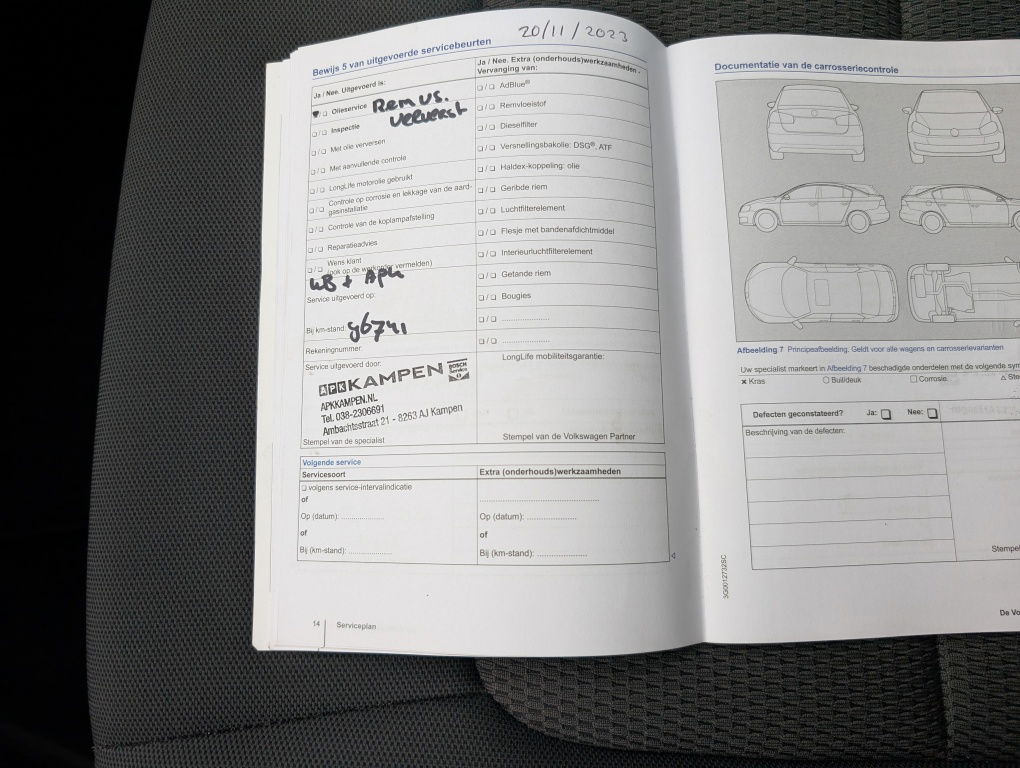 20/11/2023
Bewijs 5 van uitgevoerde servicebeurten
Ja / Nee. Uitgevoerd is:
Olieservice Rem vs. ververst
Inspectie
Met olie verversen
Met aanvullende controle
LongLife motorolie gebruikt
Controle op corrosie en lekkage van de aard-
gasinstallatie
Controle van de koplampafstelling
Reparatieadvies
Wens klant
(ook op de werkorder vermelden)
WB + APK
Service uitgevoerd op:
Bij km-stand: 96741
Rekeningnummer:
Service uitgevoerd door:
APK KAMPEN BOSCH Service
APKKAMPEN.NL
Tel. 038-2306691
Ambachtsstraat 21 - 8263 AJ Kampen
Stempel van de specialist
Ja / Nee. Extra (onderhouds)werkzaamheden -
Vervanging van:
AdBlue®
Remvloeistof
Dieselfilter
Versnellingsbakolie: DSG®, ATF
Haldex-koppeling: olie
Geribde riem
Luchtfilterelement
Flesje met bandenafdichtmiddel
Interieurluchtfilterelement
Getande riem
Bougies
LongLife mobiliteitsgarantie:
Stempel van de Volkswagen Partner
Volgende service
Servicesoort
volgens service-intervalindicatie
of
Op (datum):
of
Bij (km-stand):
Extra (onderhouds)werkzaamheden
Op (datum):
of
Bij (km-stand):
14 Serviceplan
Documentatie van de carrosseriecontrole
Afbeelding 7 Principeafbeelding. Geldt voor alle wagens en carrosserievarianten
Uw specialist markeert in Afbeelding 7 beschadigde onderdelen met de volgende sym
Kras Buil/deuk Corrosie Ste
Defecten geconstateerd? Ja: Nee:
Beschrijving van de defecten:
Stempel
3G0012732SC
De Vo